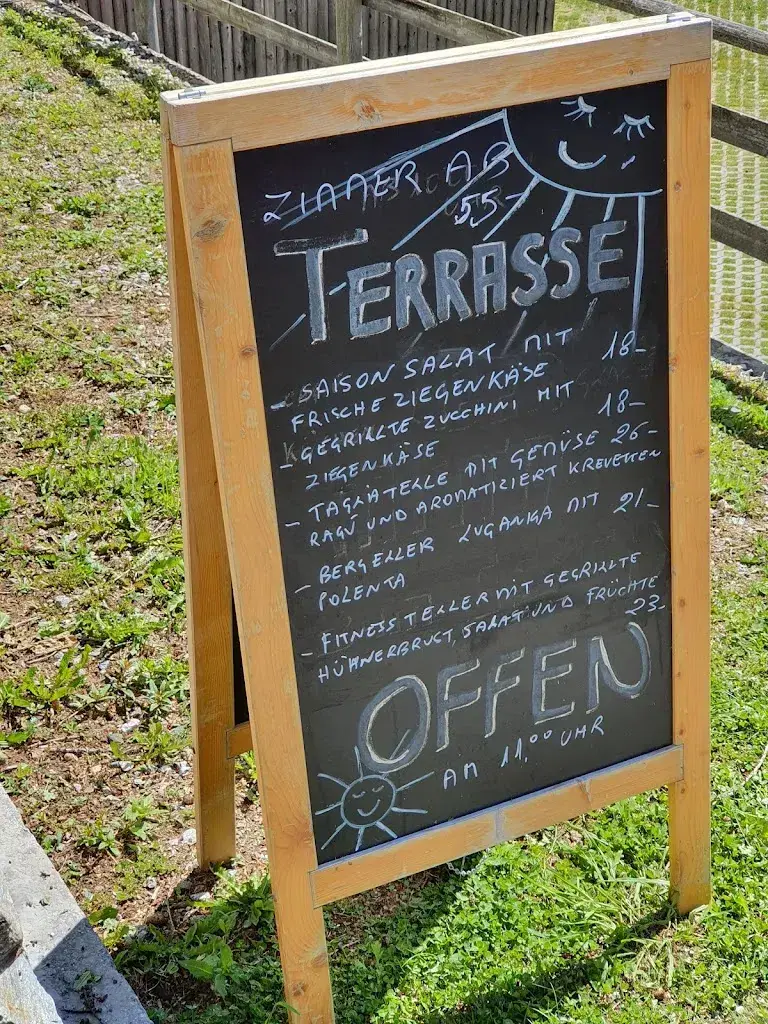 ZIMMER AB
55-
TERRASSE
- SAISON SALAT MIT 18-
FRISCHE ZIEGENKÄSE
- GEGRILLTE ZUCCHINI MIT 18-
ZIEGENKÄSE
- TAGLIATELLE MIT GEMÜSE 26-
RAGÚ UND AROMATIZIERT KREVETTEN
- BERGELLER LUGANIGA MIT 21-
POLENTA
- FITNESS TELLER MIT GEGRILLTE
HÜHNERBRUCT, SALAT UND FRÜCHTE
23-
OFFEN
AM 11.00 UHR